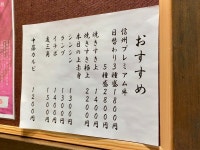 おすすめ
信州プレミアム牛
日替わり3種盛1800円
5種盛2800円
焼きすき上1400円
焼きすき極上2200円
本日の上赤身
シンシン1400円
ランプ1300円
イチボ1500円
友三角1400円
中落カルビ1200円